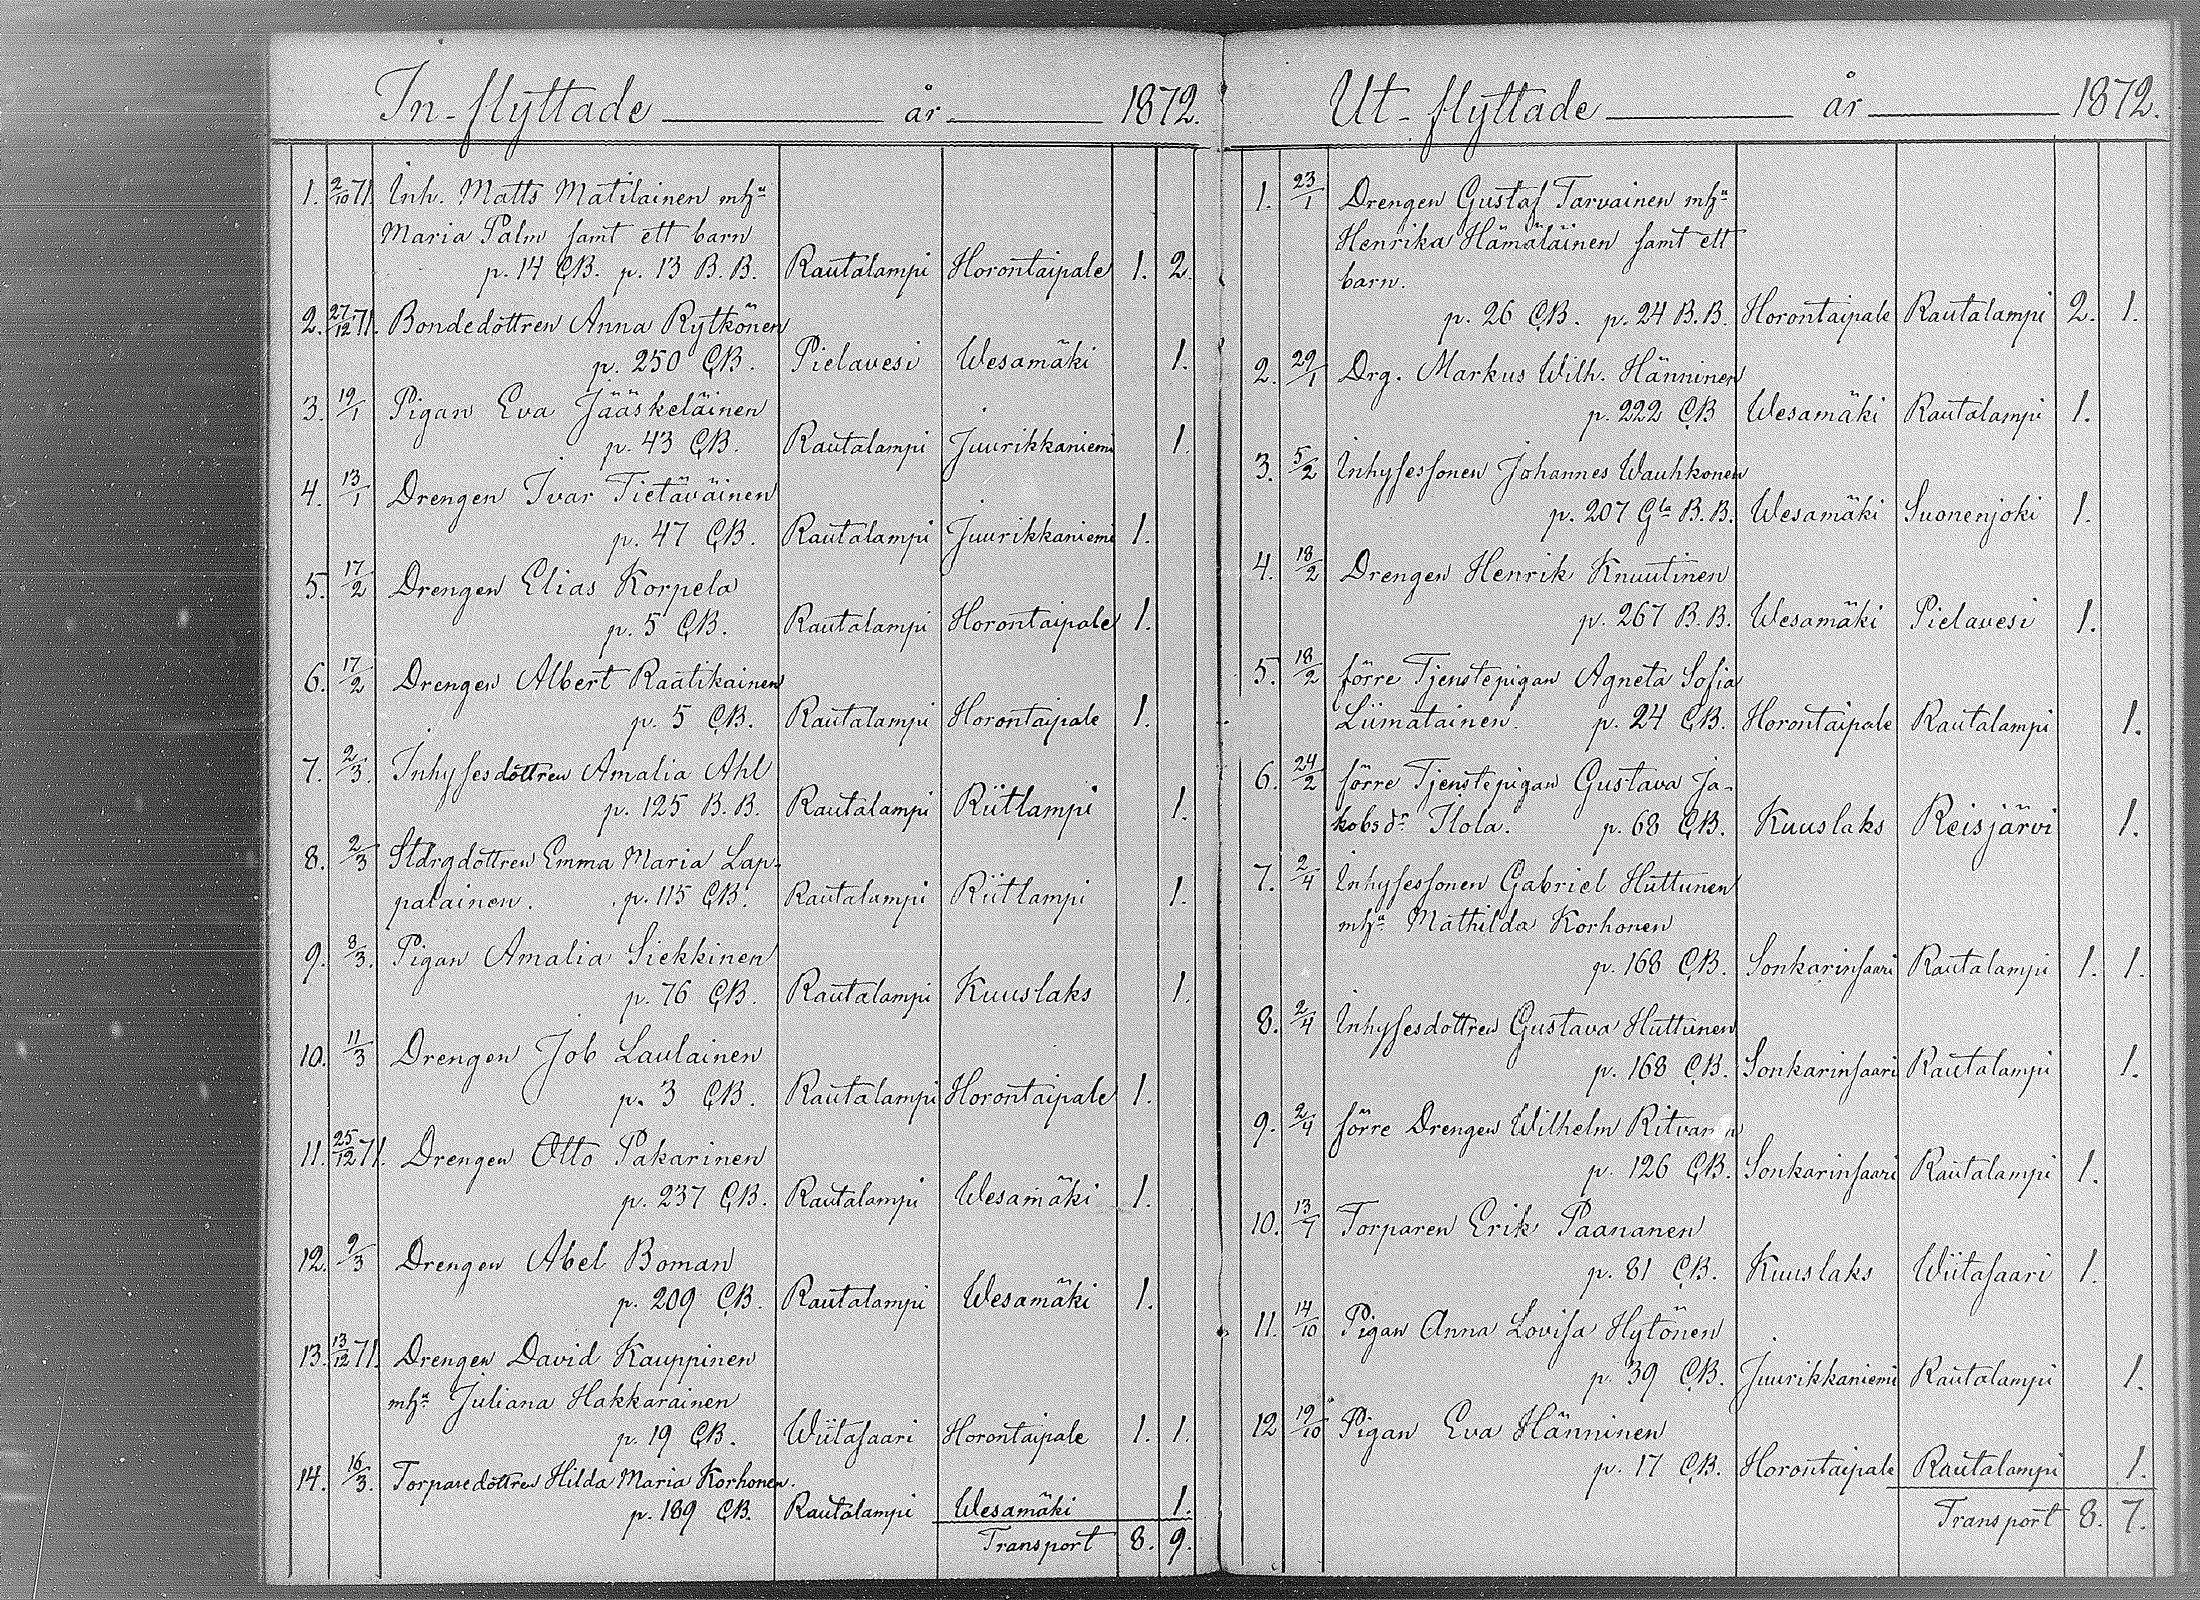 In-flyttade år 1872.
1. 2/10 71. Inh. Matts Matilainen mhu
Maria Palm samt ett barn
p. 14 C.B. p. 13 B.B. Rautalampi Horontaipale 1. 2.
2. 27/12 71. Bondedottren Anna Rytkönen
p. 250 C.B. Pielavesi Wesamäki 1.
3. 19/1 Pigan Eva Jääskeläinen
p. 43 C.B. Rautalampi Juurikkaniemi 1.
4. 13/1 Drengen Ivar Tietäväinen
p. 47 C.B. Rautalampi Juurikkaniemi 1.
5. 17/2 Drengen Elias Korpela
p. 5 C.B. Rautalampi Horontaipale 1.
6. 17/2 Drengen Albert Raatikainen
p. 5 C.B. Rautalampi Horontaipale 1.
7. 2/3. Inhysesdottren Amalia Ahl
p. 125 B.B. Rautalampi Riitlampi 1.
8. 2/3 Stdrgdottren Emma Maria Lap-
palainen. p. 115 C.B. Rautalampi Riitlampi 1.
9. 8/3. Pigan Amalia Siekkinen
p. 76 C.B. Rautalampi Kuuslaks 1.
10. 11/3 Drengen Job Laulainen
p. 3 C.B. Rautalampi Horontaipale 1.
11. 25/12 71. Drengen Otto Pakarinen
p. 237 C.B. Rautalampi Wesamäki 1.
12. 9/3 Drengen Abel Boman
p. 209 C.B. Rautalampi Wesamäki 1.
13. 13/12 71. Drengen David Kauppinen
mhu Juliana Hakkarainen
p. 19 C.B. Wiitasaari Horontaipale 1. 1.
14. 16/3. Torparedottren Hilda Maria Korhonen.
p. 189 C.B. Rautalampi Wesamäki 1.
Transport 8. 9.
Ut-flyttade år 1872.
1. 23/1 Drengen Gustaf Tarvainen mhu
Henrika Hämäläinen samt ett
barn.
p. 26 C.B. p. 24 B.B. Horontaipale Rautalampi 2. 1.
2. 29/1 Drg. Markus Wilh. Hänninen
p. 222 C.B Wesamäki Rautalampi 1.
3. 5/2 Inhysessonen Johannes Wauhkonen
p. 207 Gla B.B. Wesamäki Suonenjoki 1.
4. 18/2 Drengen Henrik Knuutinen
p. 267 B.B. Wesamäki Pielavesi 1.
5. 18/2 förre Tjenstepigan Agneta Sofia
Liimatainen. p. 24 C.B. Horontaipale Rautalampi 1.
6. 24/2 förre Tjenstepigan Gustava Ja-
kobsdr Ilola. p. 68 C.B. Kuuslaks Reisjärvi 1.
7. 2/4 Inhysessonen Gabriel Huttunen
mhu Mathilda Korhonen
p. 168 C.B. Sonkarinsaari Rautalampi 1. 1.
8. 2/4 Inhysesdottren Gustava Huttunen
p. 168 C.B. Sonkarinsaari Rautalampi 1.
9. 2/4 förre Drengen Wilhelm
p. 126 C.B. Sonkarinsaari Rautalampi 1.
10. 13/7 Torparen Erik Paananen
p. 81 C.B. Kuuslaks Wiitasaari 1.
11. 14/10 Pigan Anna Lovisa Hytönen
p. 39 C.B. Juurikkaniemi Rautalampi 1.
12 19/10 Pigan Eva Hänninen
p. 17 C.B. Horontaipale Rautalampi 1.
Transport 8. 7.